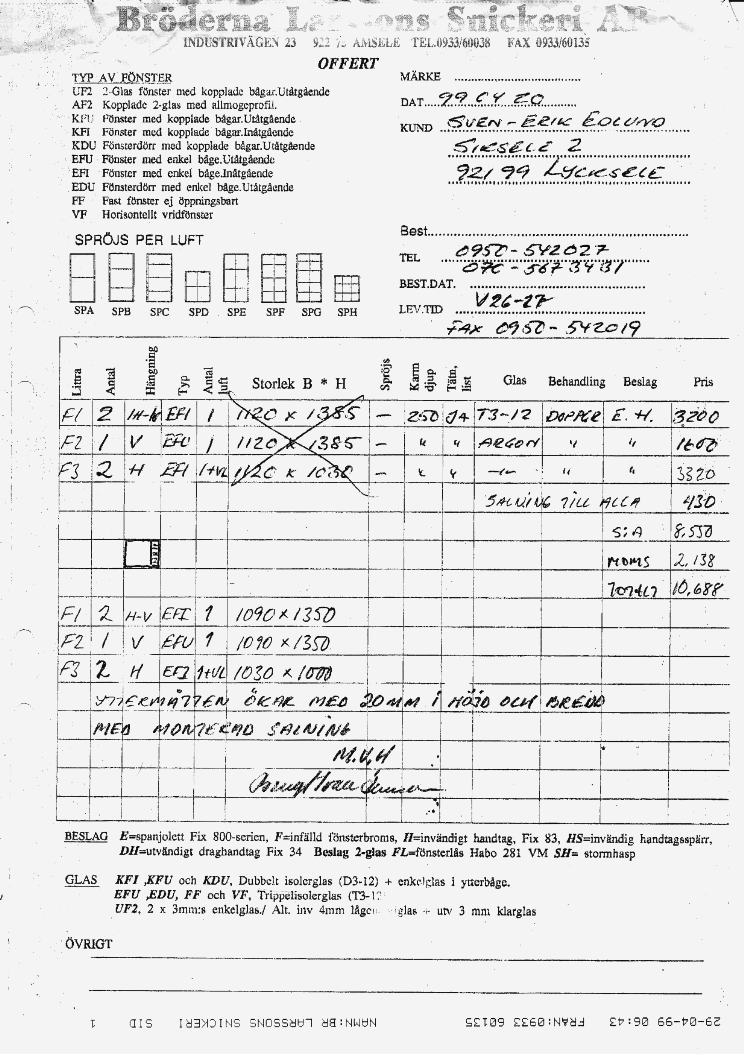 Bröderna Larssons Snickeri AB
INDUSTRIVÄGEN 23 922 75 AMSELE TEL.0933/60038 FAX 0933/60135
OFFERT
TYP AV FÖNSTER
UF2 2-Glas fönster med kopplade bågar.Utåtgående
AF2 Kopplade 2-glas med allmogeprofil.
KFU Fönster med kopplade bågar.Utåtgående
KFI Fönster med kopplade bågar.Inåtgående
KDU Fönsterdörr med kopplade bågar.Utåtgående
EFU Fönster med enkel båge.Utåtgående
EFI Fönster med enkel båge.Inåtgående
EDU Fönsterdörr med enkel båge.Utåtgående
FF Fast fönster ej öppningsbart
VF Horisontellt vridfönster
MÄRKE
DAT. 99 04 20
KUND SVEN-ERIK EDLUND
SIKSELE 2
921 99 LYCKSELE
SPRÖJS PER LUFT
SPA SPB SPC SPD SPE SPF SPG SPH
Best.
TEL 0950-542027
070-567 34 31
BEST.DAT.
LEV.TID V26-27
FAX 0950-542019
Littra Antal Hängning Typ Antal luft Storlek B * H Spröjs Karm djup Tätn, list Glas Behandling Beslag Pris
F1 2 EFI 1 1120 x 1385 – 250 T3-12 E. H. 3200
F2 1 V EFU 1 1120 x 1385 – " " ARGON " " 1600
F3 2 H EFI 1+VL 1120 x 1030 – " " –"– " " 3320
SALNING TILL ALLA 430
S:A 8,550
MOMS 2,138
TOTALT 10,688
F1 2 H-V EFI 1 1090 x 1350
F2 1 V EFU 1 1090 x 1350
F3 2 H EFI 1+VL 1030 x 1000
YTTERMÅTTEN ÖKAR MED 20 MM I HÖJD OCH BREDD
MED MONTERAD SALNING
M.V,H
BESLAG E=spanjolett Fix 800-serien, F=infälld fönsterbroms, H=invändigt handtag, Fix 83, HS=invändig handtagsspärr,
DH=utvändigt draghandtag Fix 34 Beslag 2-glas FL=fönsterlås Habo 281 VM SH= stormhasp
GLAS KFI ,KFU och KDU, Dubbelt isolerglas (D3-12) + enkelglas i ytterbåge.
EFU ,EDU, FF och VF, Trippelisolerglas (T3-12
UF2, 2 x 3mm:s enkelglas./ Alt. inv 4mm glas + utv 3 mm klarglas
ÖVRIGT
29-04-99 06:43 FRÅN:0933 60135 NAMN:BR LARSSONS SNICKERI SID 1